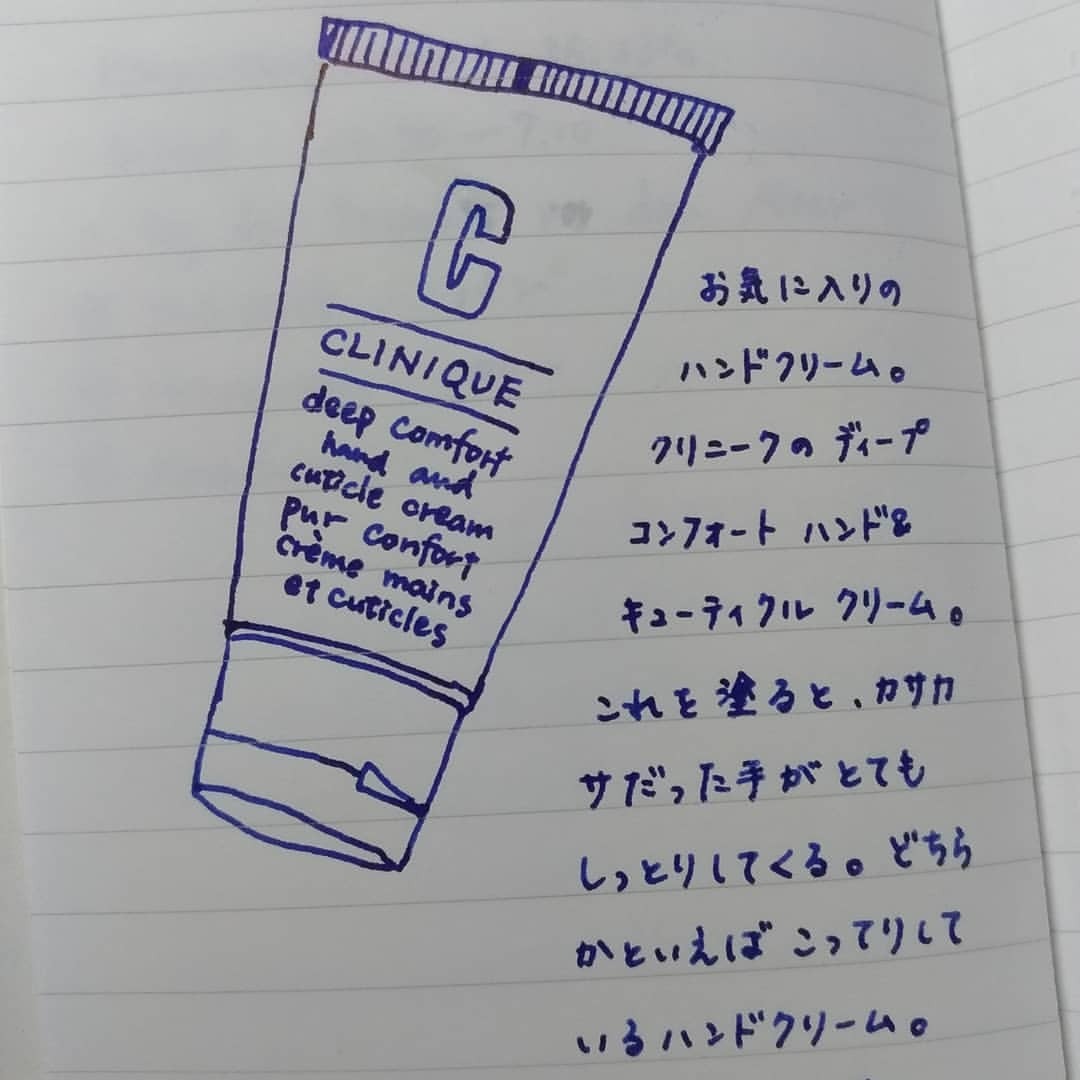 C
CLINIQUE
deep comfort
hand and
cuticle cream
pur confort
crème mains
et cuticles
お気に入りの
ハンドクリーム。
クリニークの ディープ
コンフォート ハンド&
キューティクル クリーム。
これを塗ると、カサカ
サだった手がとても
しっとりしてくる。どちら
かといえば こってりして
いるハンドクリーム。